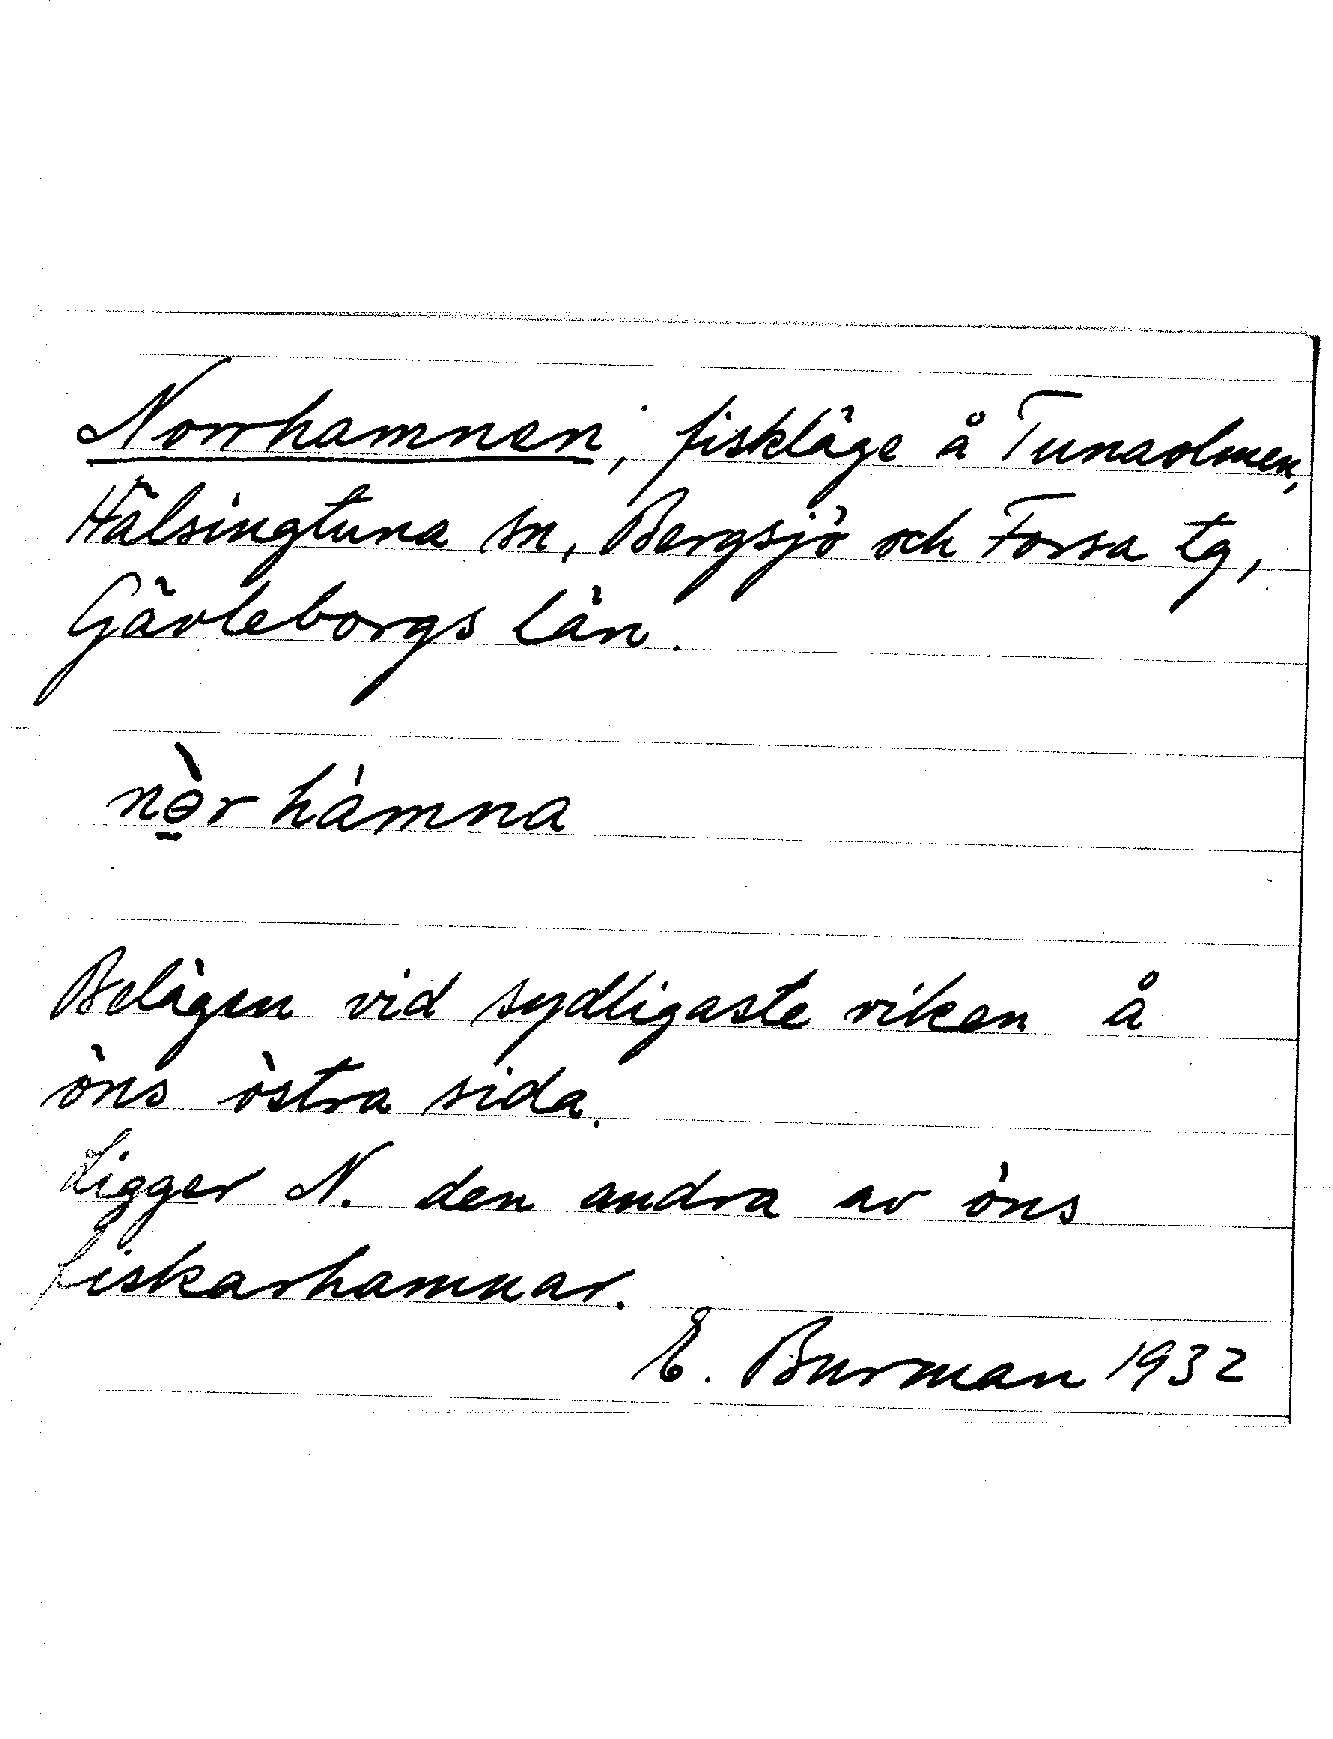 Norrhamnen, fiskläge å Tunaolmen,
Hälsingtuna sn, Bergsjö och Forsa tg,
Gävleborgs län.
nɵ̠̀r hámna
Belägen vid sydligaste viken å
öns östra sida.
Ligger N. den andra av öns
fiskarhamnar.
E. Burman 1932